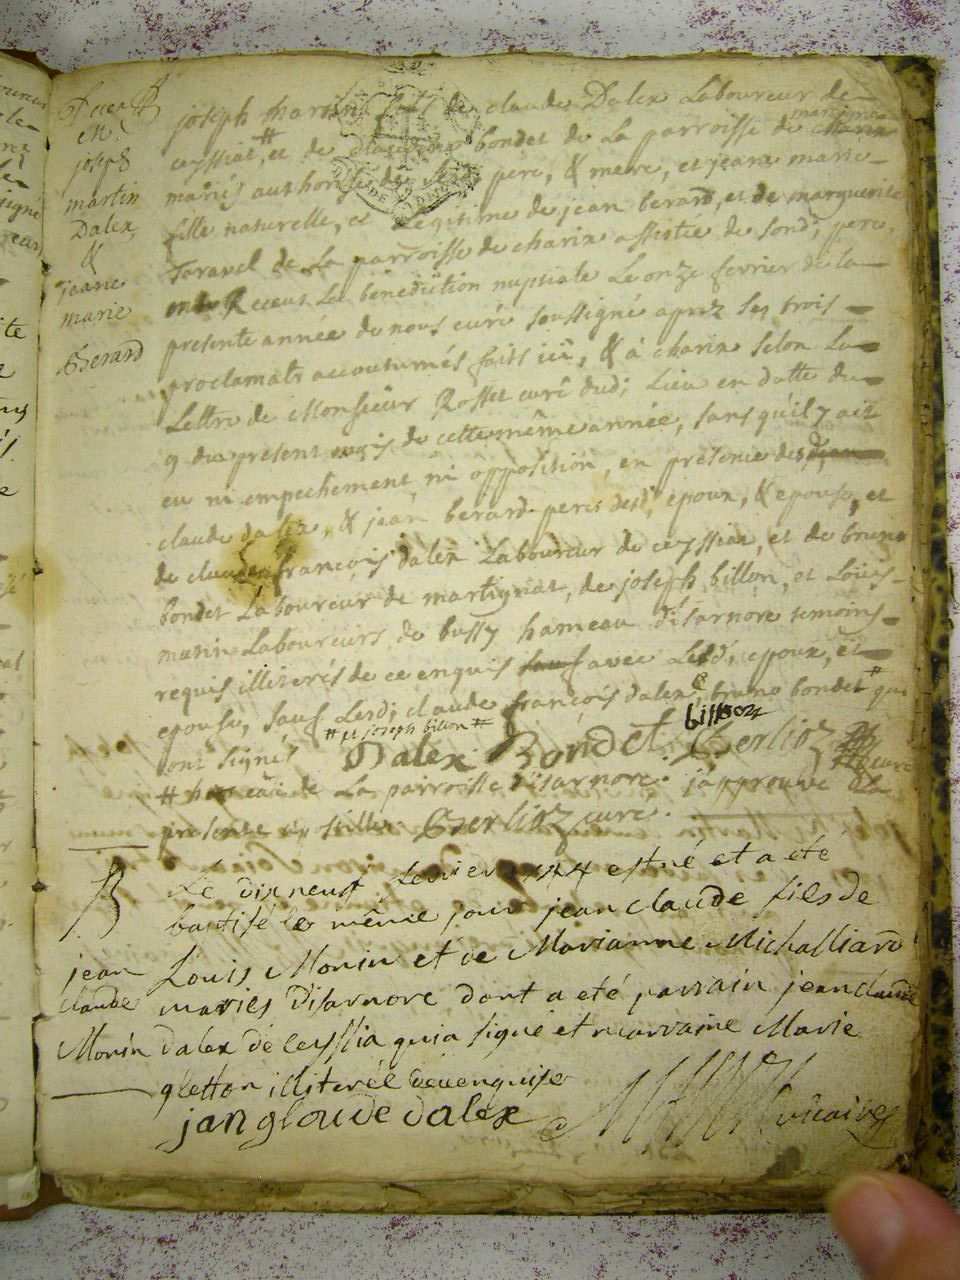 joseph martin fils de claude Dalex Laboureur de
ceyssiat, # et de bondet de La parroisse de martignat
mariés authorisé de père, & mere, et jeane marie
fille naturelle, et Legitime de jean berard, et de marguerite
Taravel de La parroisse de charix assistée de sond; pere,
Receut La bénédiction nuptiale Le onze fevrier de la
presente année de nous curé soussigné aprez les trois
proclamats accoutumés faits ici, & à charix selon La
Lettre de Monsieur Rosset curé dud; Lieu en datte du
9 du present mois de cette même année, sans qu'il y ait
eu ni empechement, ni opposition, en présence des
claude dalex, & jean berard peres desd; époux, & epouse, et
de claude françois dalex Laboureur de ceyssiat, et de bruno
bondet Laboureur de martignat, de joseph billon, et Louis
monin Laboureurs de bussy hameau d'isarnore temoins
requis illiterés de ce enquis sauf avec Lesd; epoux, et
epouse, sauf Lesd; claude françois dalex, bruno bondet # qui
# et joseph billon #
ont signés Dalex Bondet billion Gerlioz curé
# hameau de La parroisse d'isarnore. j'approuve La
presente apostille Gerlioz curé.
joseph
martin
Dalex
&
jeane
marie
Berard
B
Le dix neuf fevrier 1744 est né et a été
batisé le même jour jean claude fils de
Louis Monin et de Marianne Michalliard
mariés d'isarnore dont a eté parrain jean claude
dalex de ceyssia qui a signé et marraine Marie
gletton illiterée de ce enquise
jean
claude
Monin
jan gloude dalex vicaire